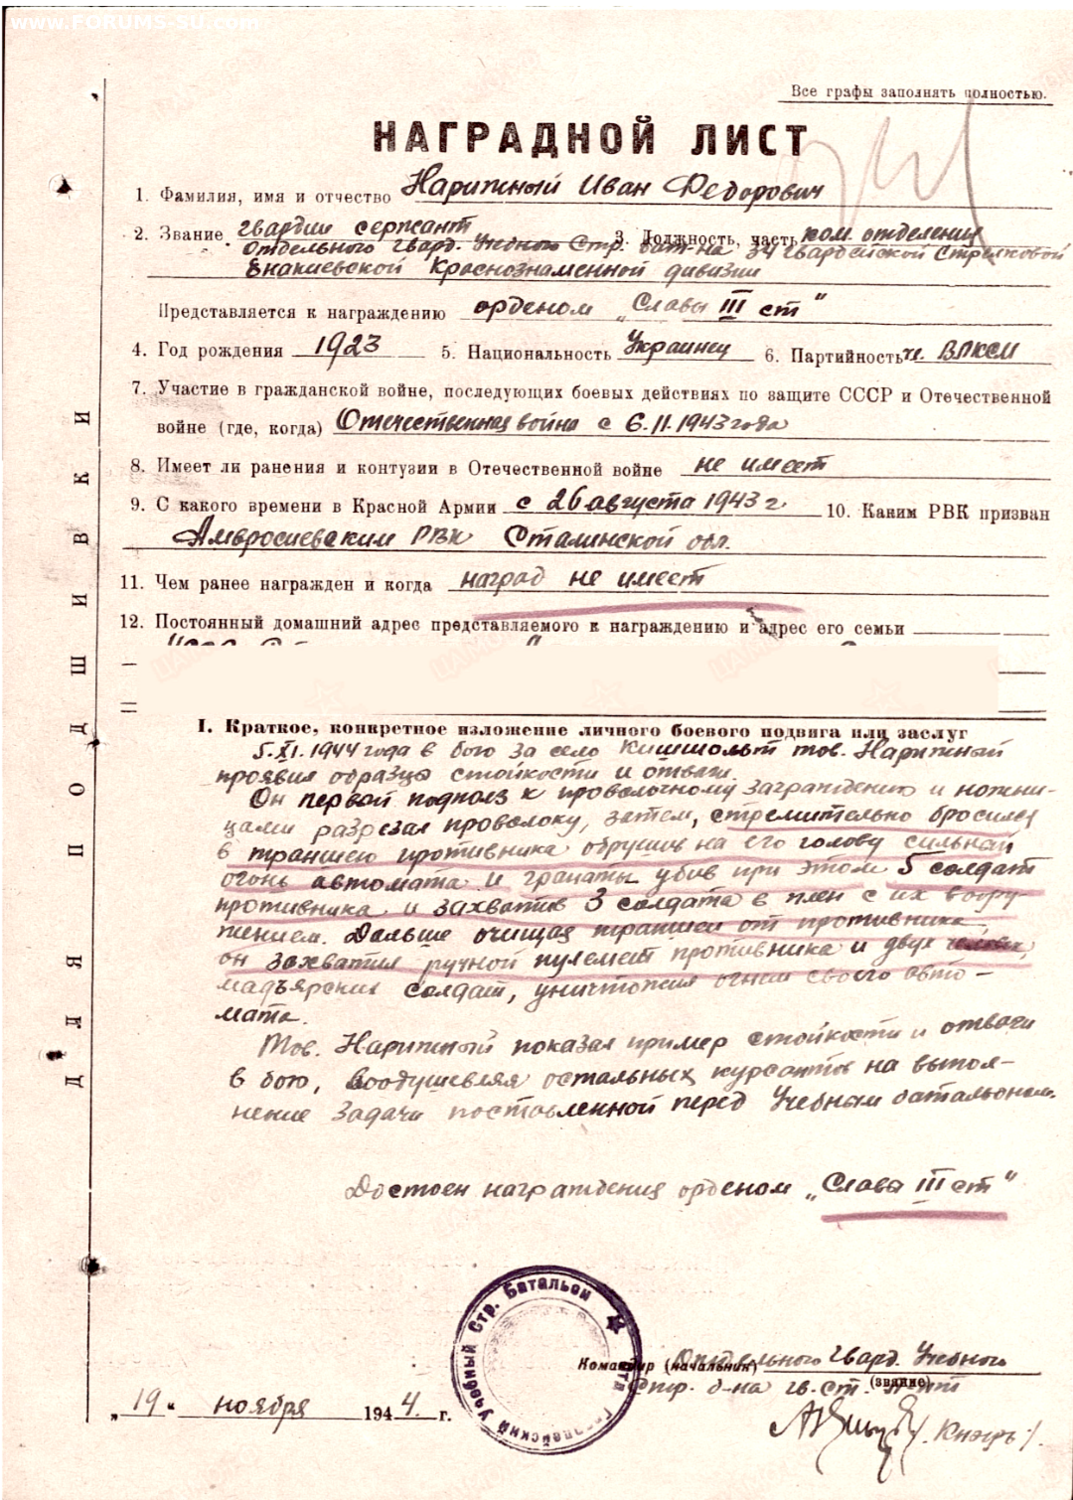 www.FORUMS-SU.com
Все графы заполнять полностью.
НАГРАДНОЙ ЛИСТ
1. Фамилия, имя и отчество Нарижный Иван Федорович
2. Звание гвардии сержант 3. Должность, часть ком. отделения
отдельного гвард. Учебного Стр. бат-на 34 гвардейской Стрелковой
Енакиевской Краснознаменной дивизии
Представляется к награждению орденом „Славы III ст"
4. Год рождения 1923 5. Национальность Украинец 6. Партийность чл. ВЛКСМ
7. Участие в гражданской войне, последующих боевых действиях по защите СССР и Отечественной
войне (где, когда) Отечественная война с 6.11.1943 года
8. Имеет ли ранения и контузии в Отечественной войне не имеет
9. С какого времени в Красной Армии с 26 августа 1943 г 10. Каким РВК призван
Амвросиевским РВК Сталинской обл.
11. Чем ранее награжден и когда наград не имеет
12. Постоянный домашний адрес представляемого к награждению и адрес его семьи
I. Краткое, конкретное изложение личного боевого подвига или заслуг
5.XI.1944 года в бою за село Кишшольт тов. Нарижный
проявил образцы стойкости и отваги.
Он первый подполз к проволочному заграждению и ножни-
цами разрезал проволоку, затем, стремительно бросился
в траншею противника обрушив на его голову сильный
огонь автомата и гранаты убив при этом 5 солдат
противника и захватив 3 солдата в плен с их воору-
жением. Дальше очищая траншеи от противника,
он захватил ручной пулемет противника и двух
мадъярских солдат, уничтожил огнем своего авто-
мата.
Тов. Нарижный показал пример стойкости и отваги
в бою, воодушевляя остальных курсантов на выпол-
нение задачи поставленной перед Учебным батальоном.
Достоен награждения орденом „Слава III ст"
Командир (начальник) Отдельного Гвард. Учебного
(звание)
Стр. б-на гв. ст. л-нт
„19" ноября 1944 г.
ДЛЯ ПОДШИВКИ
Учебный Стр. Батальон